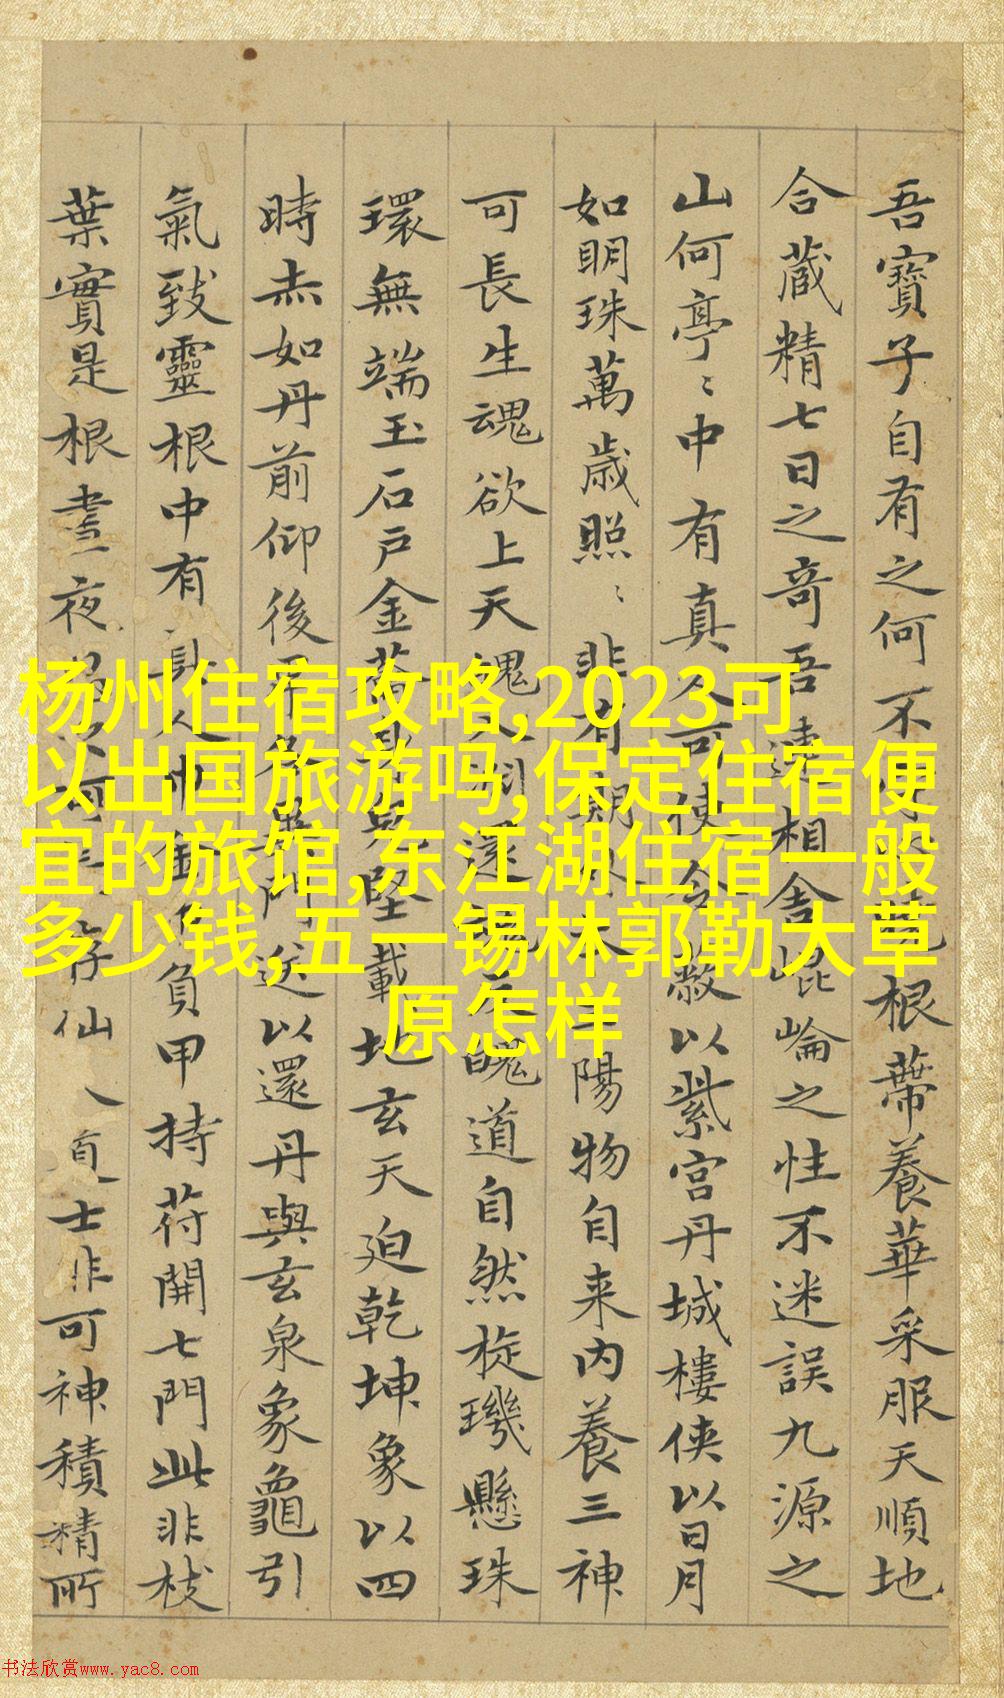 吾寶子自有之何不根蒂養華采服天順地
合藏精七日之奇吾連相舍崐崘之性不迷誤九源之
山何亭〻中有真人可使令蔽以紫宮丹城樓俠以日月
如明珠萬歲照〻非有期陽物自来內養三神
可長生魂欲上天魄入還魂反魄道自然旋璣懸珠
環無端玉石戶金籥堅載地玄天迫乾坤象以四
時赤如丹前仰後門送以還丹與玄泉象龜引
氣致靈根中有人巾金巾負甲持符開七門此非枝
葉實是根晝夜存仙人士非可神積精所
杨州住宿攻略,2023可
以出国旅游吗,保定住宿便
宜的旅馆,东江湖住宿一般
多少钱,五一锡林郭勒大草
原怎样
书法欣赏www.yac8.com